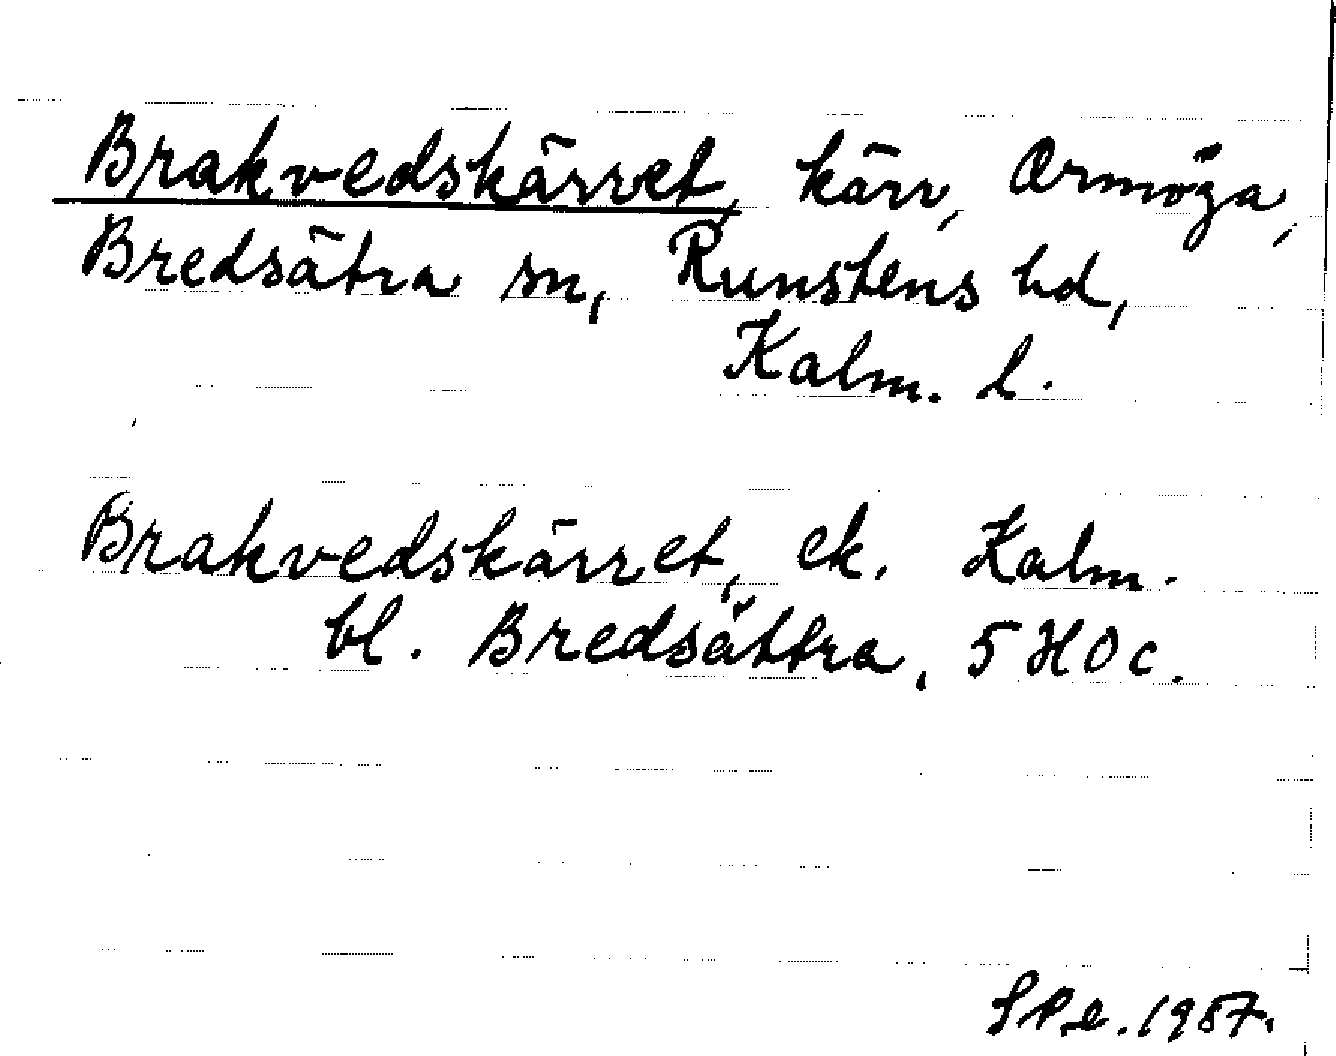 Brakvedskärret, kärr, Ormöga,
Bredsätra sn, Runstens hd,
Kalm. l.
Brakvedskärret, ek. Kalm.
bl. Bredsättra, 5 H 0 c.
1987.